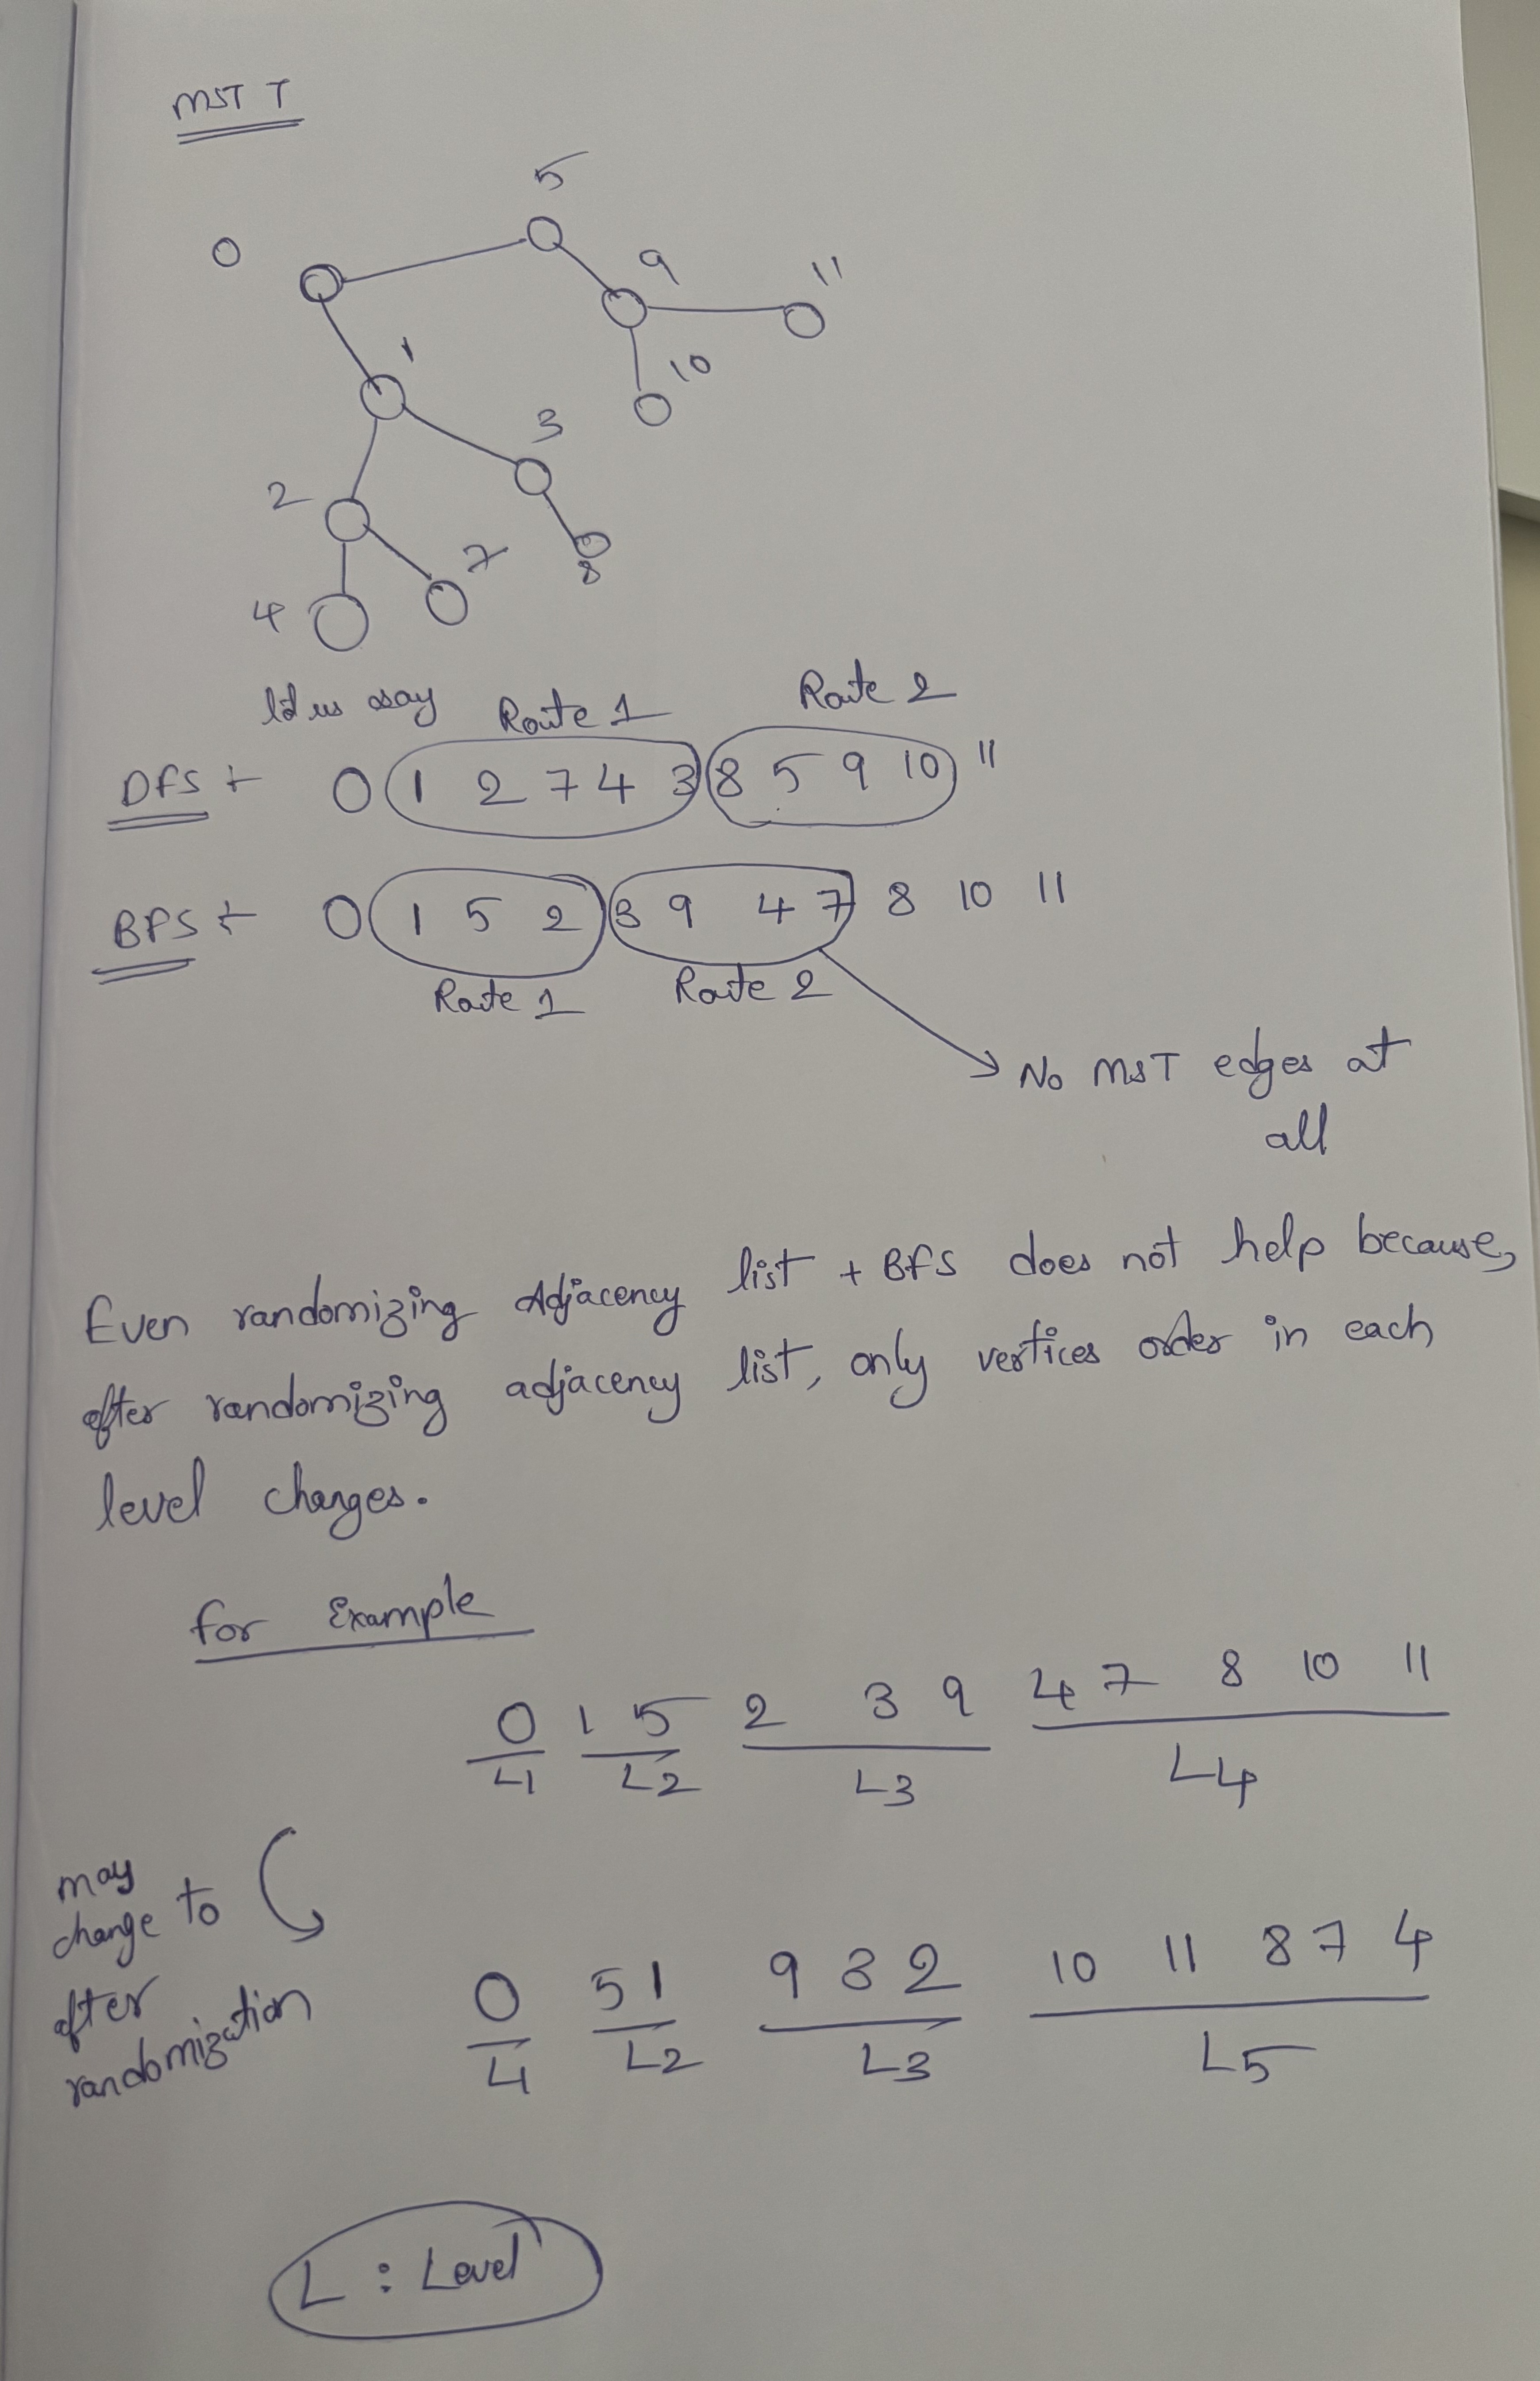 MST T
5
0
9
11
1
10
3
2
7
8
4
let us say Route 1 Route 2
DFS + 0 1 2 7 4 3 8 5 9 10 11
BFS + 0 1 5 2 3 9 4 7 8 10 11
Route 1 Route 2
No MST edges at
all
Even randomizing Adjacency list + BFS does not help because,
after randomizing adjacency list, only vertices order in each
level changes.
for Example
0 1 5 2 3 9 4 7 8 10 11
L1 L2 L3 L4
may
change to
after
randomization
0 5 1 9 3 2 10 11 8 7 4
L1 L2 L3 L5
L : Level